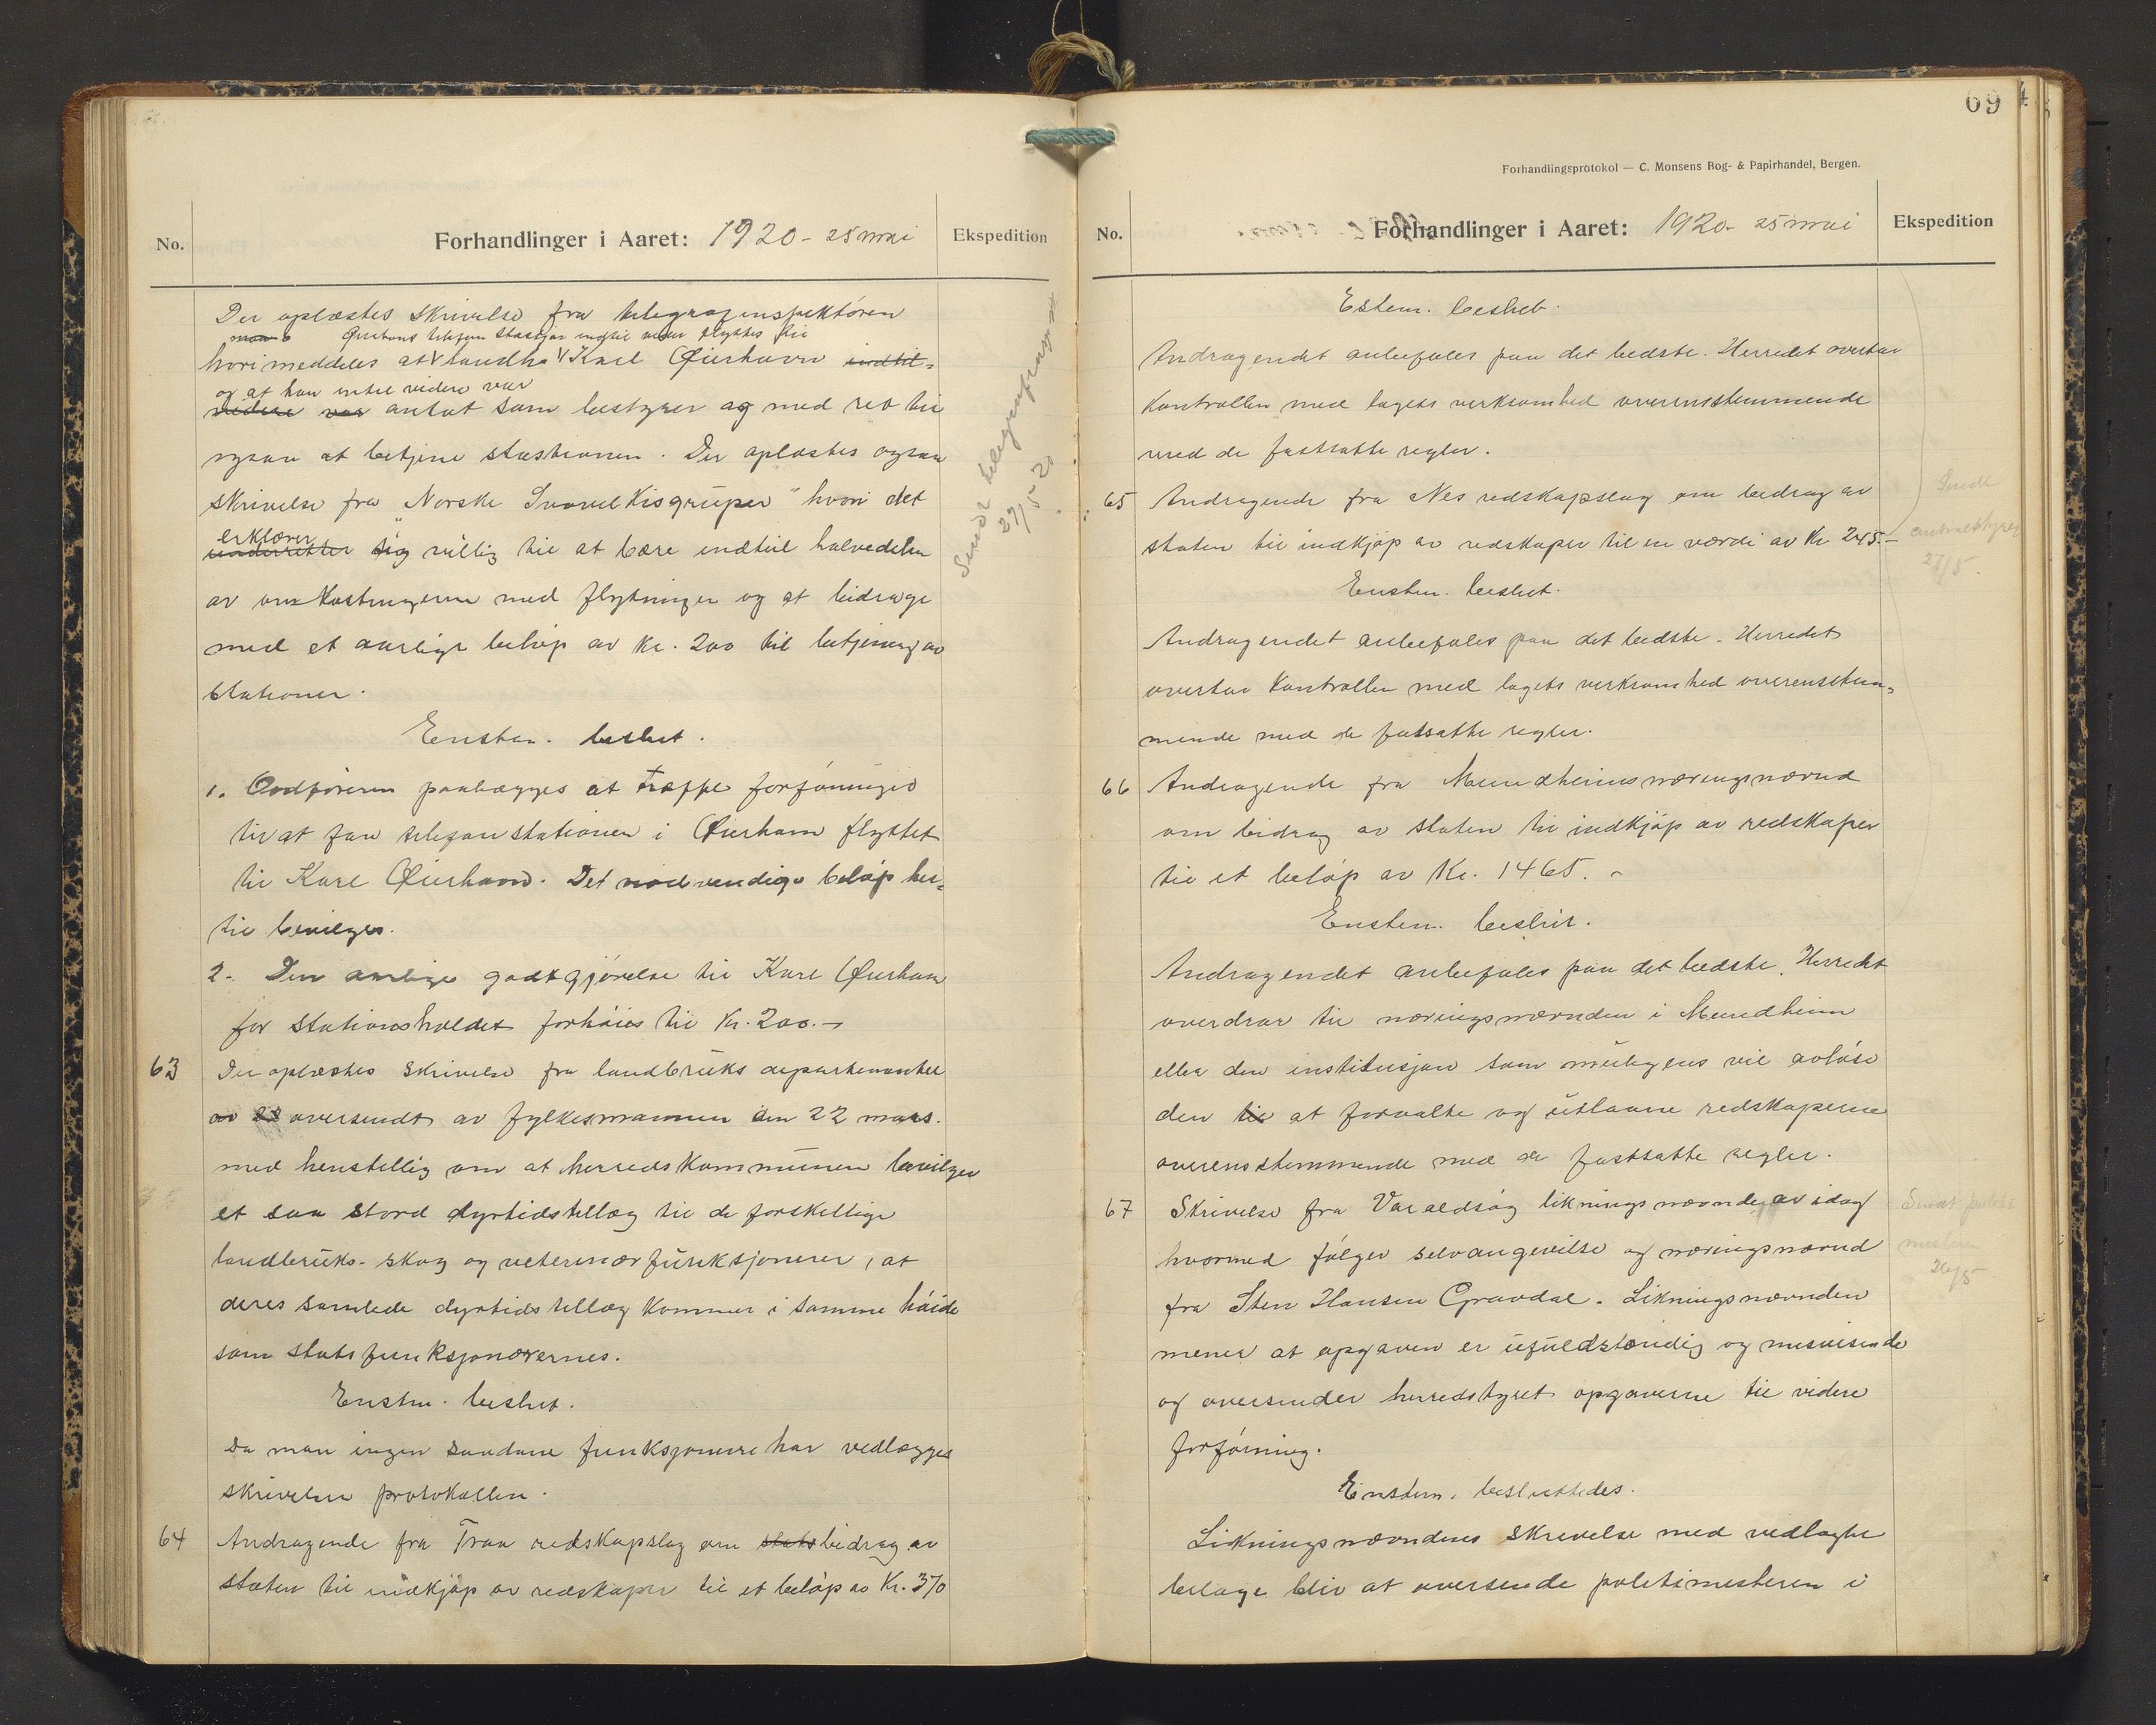 No.
Forhandlinger i Aaret: 1920 - 25 mai
Ekspedition
Der oplæstes skrivelse fra telegrafinspektören
Øierhavns telefon stasjon indtil videre flyttes til
hvori meddeles at landh. Karl Øierhavn indtil-
og at han intil videre var
videre var antat som bestyrer og med ret til
ogsaa at betjene stasionen. Der oplæstes ogsaa
skrivelse fra "Norske Svovelkisgruper" hvori det
erklærer
underretter sig villig til at bære indtil halvedelen
av omkostningerne med flytningen og at bidrage
med et aarligt belöp av kr. 200 til betjening av
stationen.
Enstem. beslut.
1. Ordföreren paalægges at træffe forföininger
til at faa telefonstationen i Øierhavn flyttet
til Karl Øierhavn. Det nödvendige belöp her-
til bevilges.
2. Den aarlige godtgjörelse til Karl Øierhavn
for stationsholdet forhöies til kr. 200.-
63 Der oplæstes skrivelse fra landbruksdepartementet
oversendt av fylkesmannen den 22 mars.
med henstillig om at herredskommunen bevilger
et saa stord dyrtidstillæg til de forskellige
landbruks- skog og veterinærfunksjonerer, at
deres samlede dyrtidstillæg kommer i samme höide
som statsfunksjonærernes.
Enstm. beslut.
Da man ingen saadane funksjonere har vedlægges
skrivelsen protokollen.
64 Andragende fra Traa redskapslag om stats bidrag av
staten til indkjöp av redskaper til et belöp av Kr. 370
Sendt telegrafinsp.
27/5-20
69
Forhandlingsprotokol — C. Monsens Bog- & Papirhandel, Bergen.
No.
Forhandlinger i Aaret: 1920 - 25 mai
Ekspedition
Estem. beslut.
Andragendet anbefales paa det bedste. Herredet overtar
kontrollen med lagets verksomhed overensstemmende
med de fastsatte regler.
65 Andragende fra Nes redskapslag om bedrag av
staten til indkjöp av redskaper til en værdi av Kr 245.-
Enstem. beslut.
Andragendet anbefales paa det bedste. Herredet
overtar kontrollen med lagets verksomhed overensstem-
mende med de fatsatte regler.
66 Andragende fra Mundheims næringsnævnd
om bidrag av staten til indkjöp av redskaper
til et belöp av Kr. 1465.-
Enstem. beslut.
Andragendet anbefales paa det bedste. Herredet
overdrar til næringsnævnden i Mundheim
eller den institusjon som muligens vil avlöse
den til at forvalte og utlaane redskaperne
overensstemmende med de fastsatte regler.
67 Skrivelse fra Varaldsöy likningsnævnde av idag
hvormed fölger selvangivelse og næringsnævnd
fra Sten Hansen Gravdal. Likningsnævnden
mener at opgaven er ufuldstændig og misvisende
og oversender herredstyret opgaverne til videre
forföining.
Enstem. besluttedes.
Likningsnævndens skrivelse med vedlagte
bilage blir at oversende politimesteren i
Sendt
27/5.
Sendt politi-
mesteren
26/5